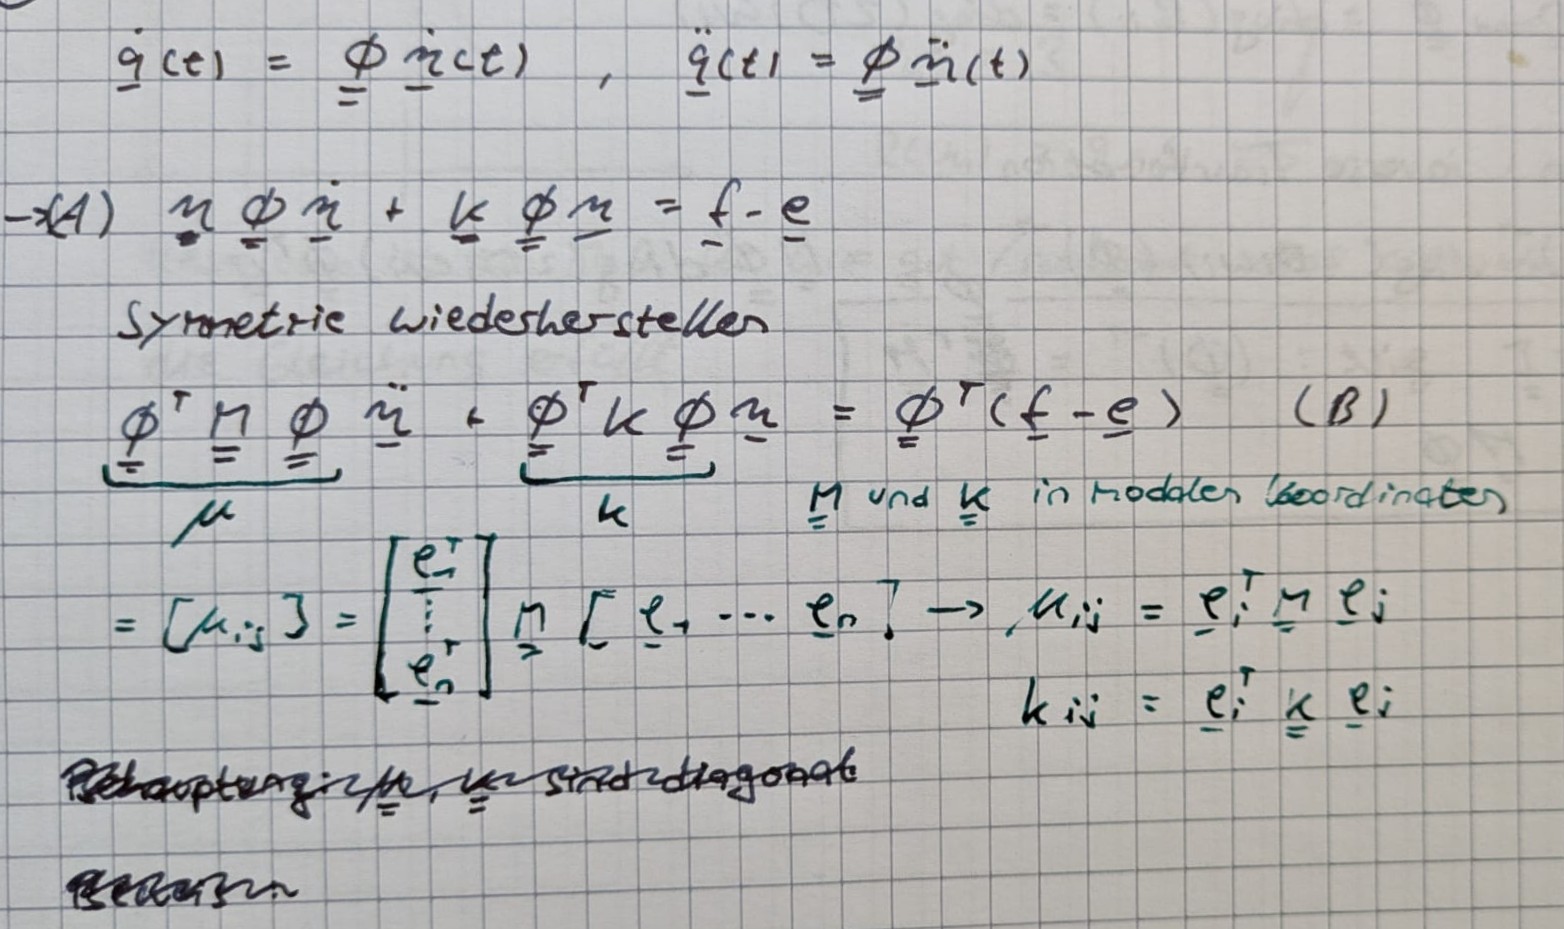 q̇(t) = Φ η̇(t) , q̈(t) = Φ η̈(t)
→(A) M Φ η̈ + K Φ η = f - e
Symmetrie wiederherstellen
Φᵀ M Φ η̈ + Φᵀ K Φ η = Φᵀ(f - e) (B)
μ k M und K in modalen Koordinaten
= [μij] = [e₁ᵀ ⋮ eₙᵀ] M [e₁ ... eₙ] → μij = eiᵀ M ej
kij = eiᵀ K ej
Behauptung: μ, κ sind diagonal